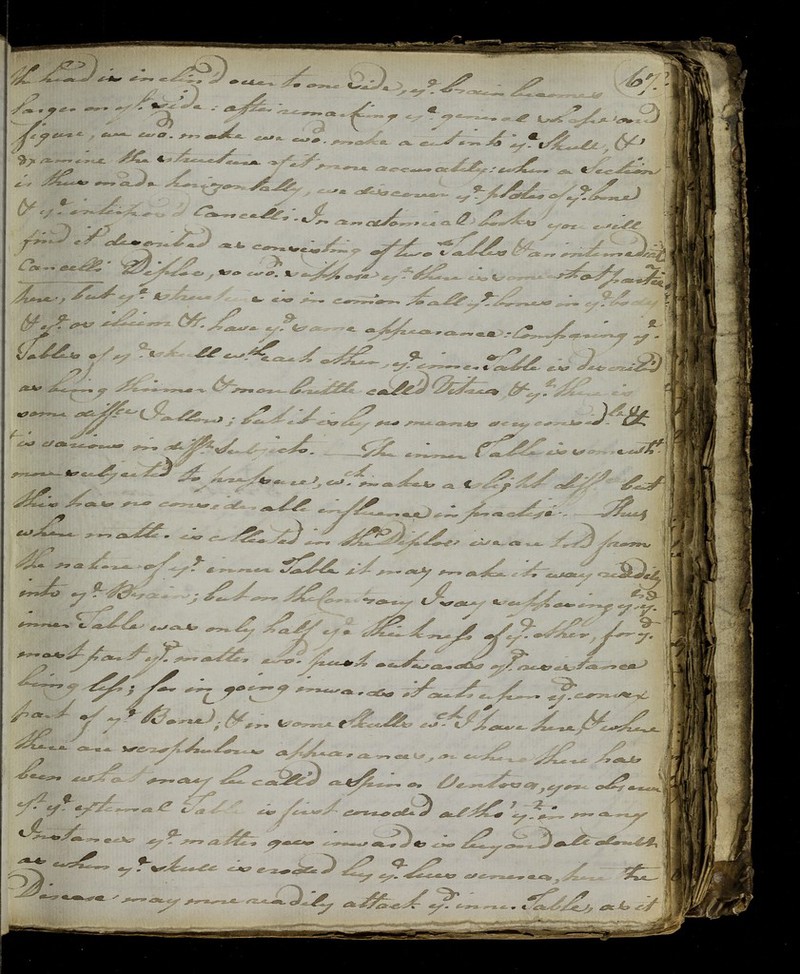 67.
the head is inclin'd over to one Side, ye. brain becomes
larger on yt. side: after remarking ye. general shape and
figure, we wd. make we wd. make a cut into ye. Skull, &
examine the structure of it more accurately: when a Section
is thus made horizontally, we discover ye. plates of ye. bone
& ye. interpos'd Cancelli. In anatomical books you will
find it described as consisting of two Tables & an intermediate
Cancelli Diploe, so wd. suppose yt. there is somewhat particular
here, but ye. structure is in comon to all ye. bones in ye. body
& ye. os ilium &c. have ye. same appearance: Comparing ye.
Tables of ye. skull wth. each other, ye. inner Table is described
as being thinner & more brittle called Vitrea, & yt. there is
some diffce. I allow; but it is by no means very consid.ble &
is various in difft. Subjects. — The inner Table is somewht.
more subjected to pressure, wch. makes a slight diff. but
this has no considerable influence in practise. — Thus
where matter is collected in the Diploe we are told from
the nature of ye. inner Table it may make its way readily
into ye. Brain; but on the Contrary I say supposing yt. ye.
inner Table was only half ye. thickness of ye. other, for ye.
most part ye. matter wd. push outwards ye. resistance
being less; for in going inwards it acts upon ye. convex
part of ye. Bone; & in some Skulls wch. I have here, & where
there are scrophulous appearances, or where there has
been what may be call'd a Spina Ventosa, you observe
yt. ye. external Table is first corroded altho' yt. in many
Instances ye. matter goes inwards is beyond all doubt
as when ye. skull is eroded by ye. lues venerea, here the
Disease may more readily attack ye. inner Table, as it